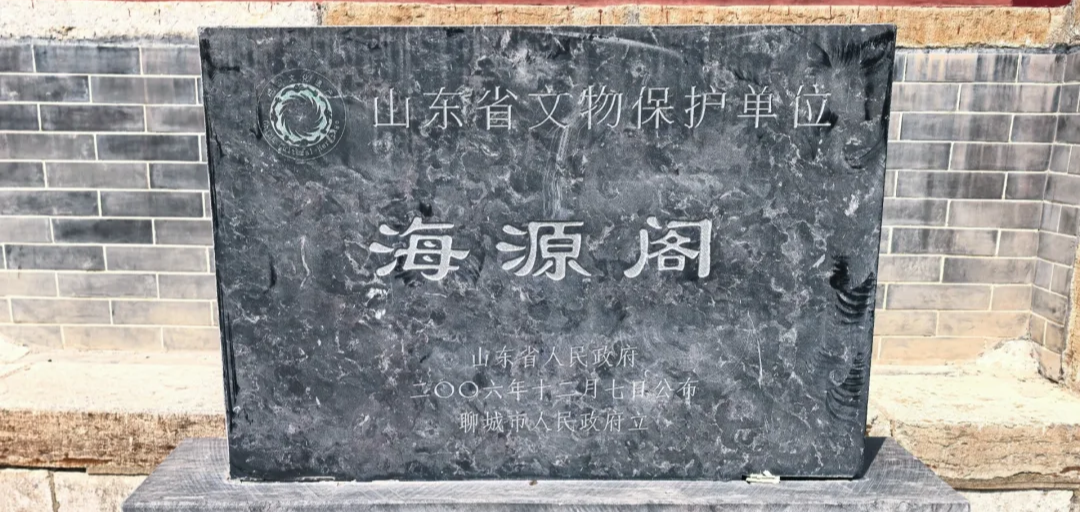 山东省文物保护单位
海源阁
山东省人民政府
二〇〇六年十二月七日公布
聊城市人民政府立